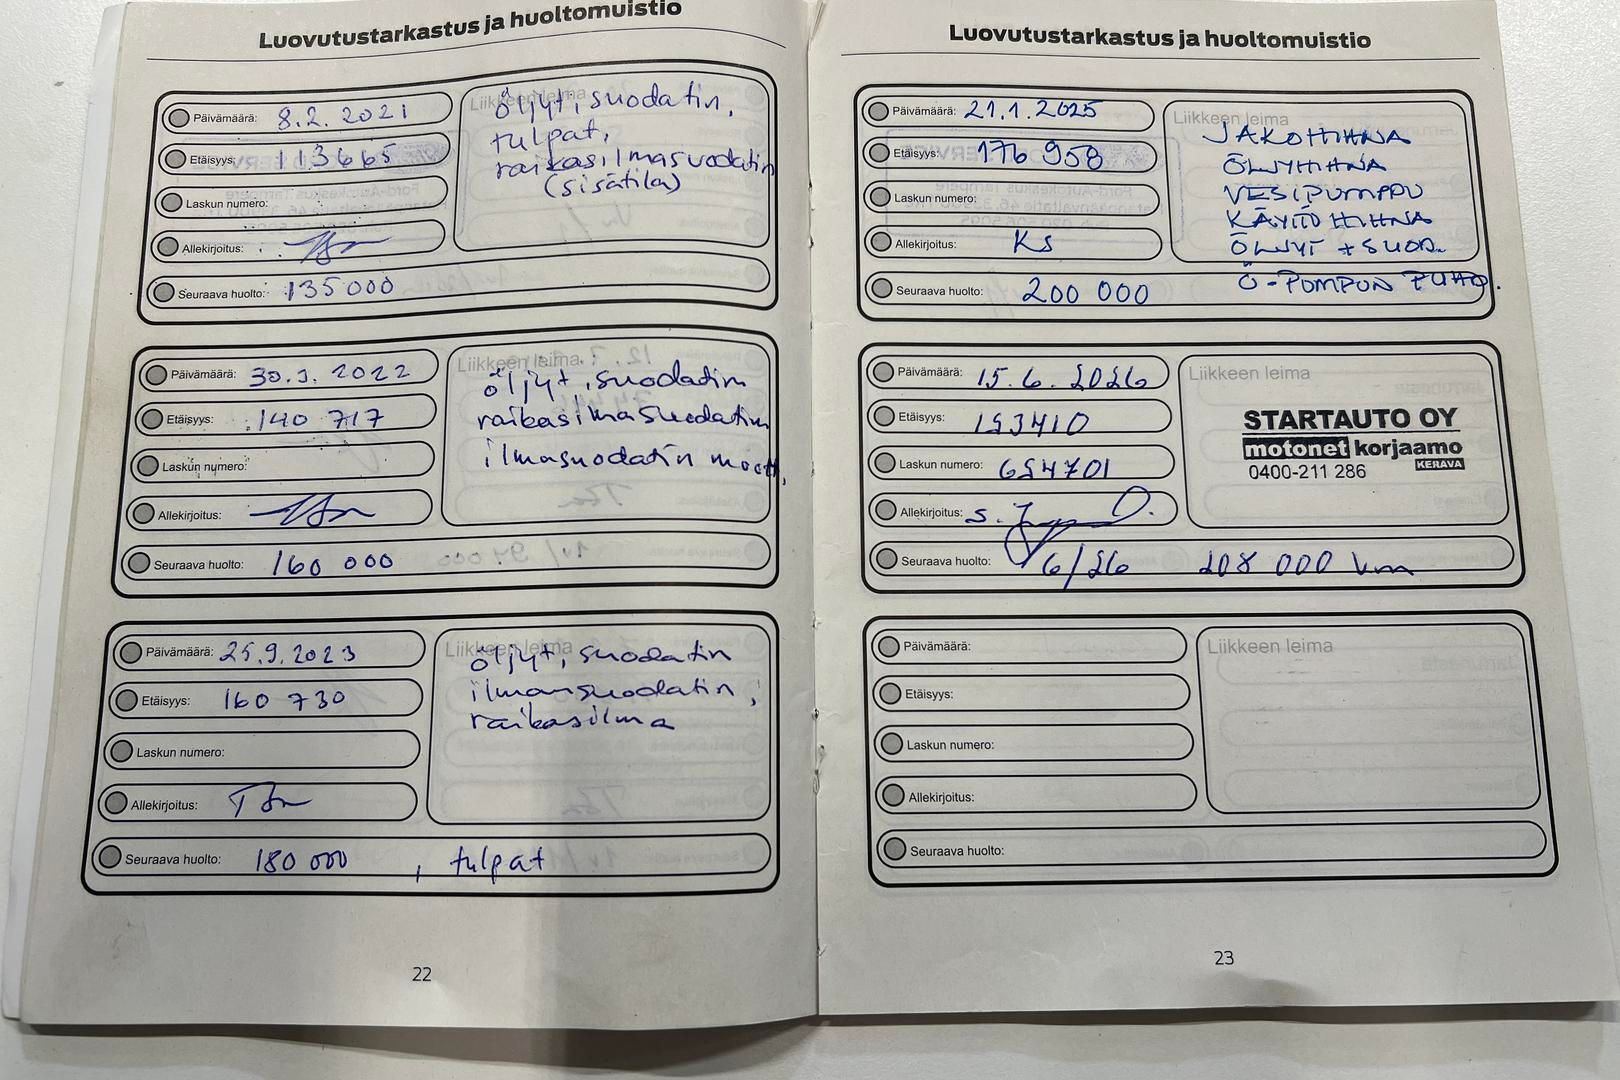 Luovutustarkastus ja huoltomuistio
Päivämäärä: 8.2.2021
Etäisyys: 113665
Laskun numero:
Allekirjoitus:
Seuraava huolto: 135000
Liikkeen leima
öljyt, suodatin,
tulpat,
raikasilmasuodatin
(sisätila)
Päivämäärä: 30.9.2022
Etäisyys: 140 717
Laskun numero:
Allekirjoitus:
Seuraava huolto: 160 000
Liikkeen leima
öljyt, suodatin
raikasilmasuodatin
ilmasuodatin moott.
Päivämäärä: 25.9.2023
Etäisyys: 160 730
Laskun numero:
Allekirjoitus:
Seuraava huolto: 180 000, tulpat
Liikkeen leima
öljyt, suodatin
ilmansuodatin,
raikasilma
22
Luovutustarkastus ja huoltomuistio
Päivämäärä: 21.1.2025
Etäisyys: 176 958
Laskun numero:
Allekirjoitus: KS
Seuraava huolto: 200 000
Liikkeen leima
JAKOHIHNA
ÖLJYHIHNA
VESIPUMPPU
KÄYTTÖHIHNA
ÖLJYT + SUOD.
Ö-PUMPUN PUHD.
Päivämäärä: 15.6.2026
Etäisyys: 193410
Laskun numero: 654701
Allekirjoitus:
Seuraava huolto: 6/26 208 000 km
Liikkeen leima
STARTAUTO OY
motonet korjaamo
KERAVA
0400-211 286
Päivämäärä:
Etäisyys:
Laskun numero:
Allekirjoitus:
Seuraava huolto:
Liikkeen leima
23